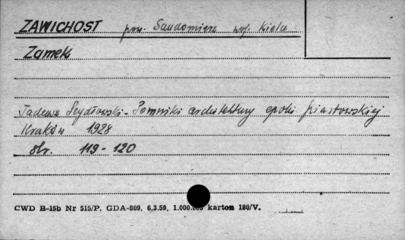 ZAWICHOST pow. Sandomierz woj. Kielce
Zamek
Tadeusz Szydłowski - Pomniki architektury epoki piastowskiej
Kraków 1928
str. 119-120
CWD B-15b Nr 515/P. GDA-809, 6.3.59, 1.000.000 karton 180/V.